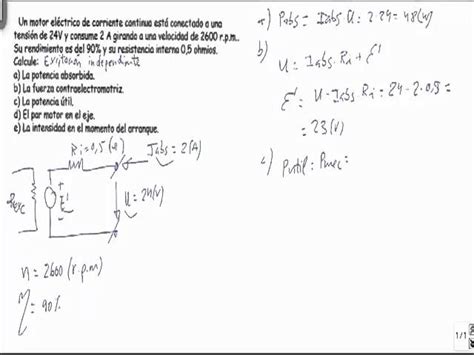 Un motor eléctrico de corriente continua está conectado a una
tensión de 24V y consume 2 A girando a una velocidad de 2600 r.p.m..
Su rendimiento es del 90% y su resistencia interna 0,5 ohmios.
Calcule: Excitación independiente
a) La potencia absorbida.
b) La fuerza contraelectromotriz.
c) La potencia útil.
d) El par motor en el eje.
e) La intensidad en el momento del arranque.
Ri=0,5(Ω) Iabs=2(A)
Rexc E' U=24(V)
n = 2600 (r.p.m)
η = 90%
a) Pabs = Iabs·U = 2·24 = 48(W)
b)
U = Iabs·Ri + E'
E' = U - Iabs·Ri = 24-2·0,5 =
= 23(V)
c) Pútil = Pmec =
1/1